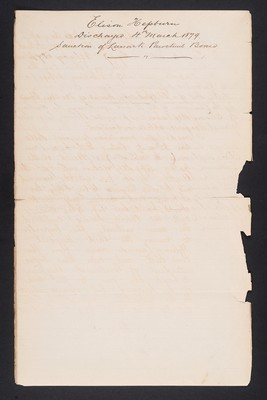 Elison Hepburn
Discharged 4th March 1879
Sanction of Lanark Parochial Board